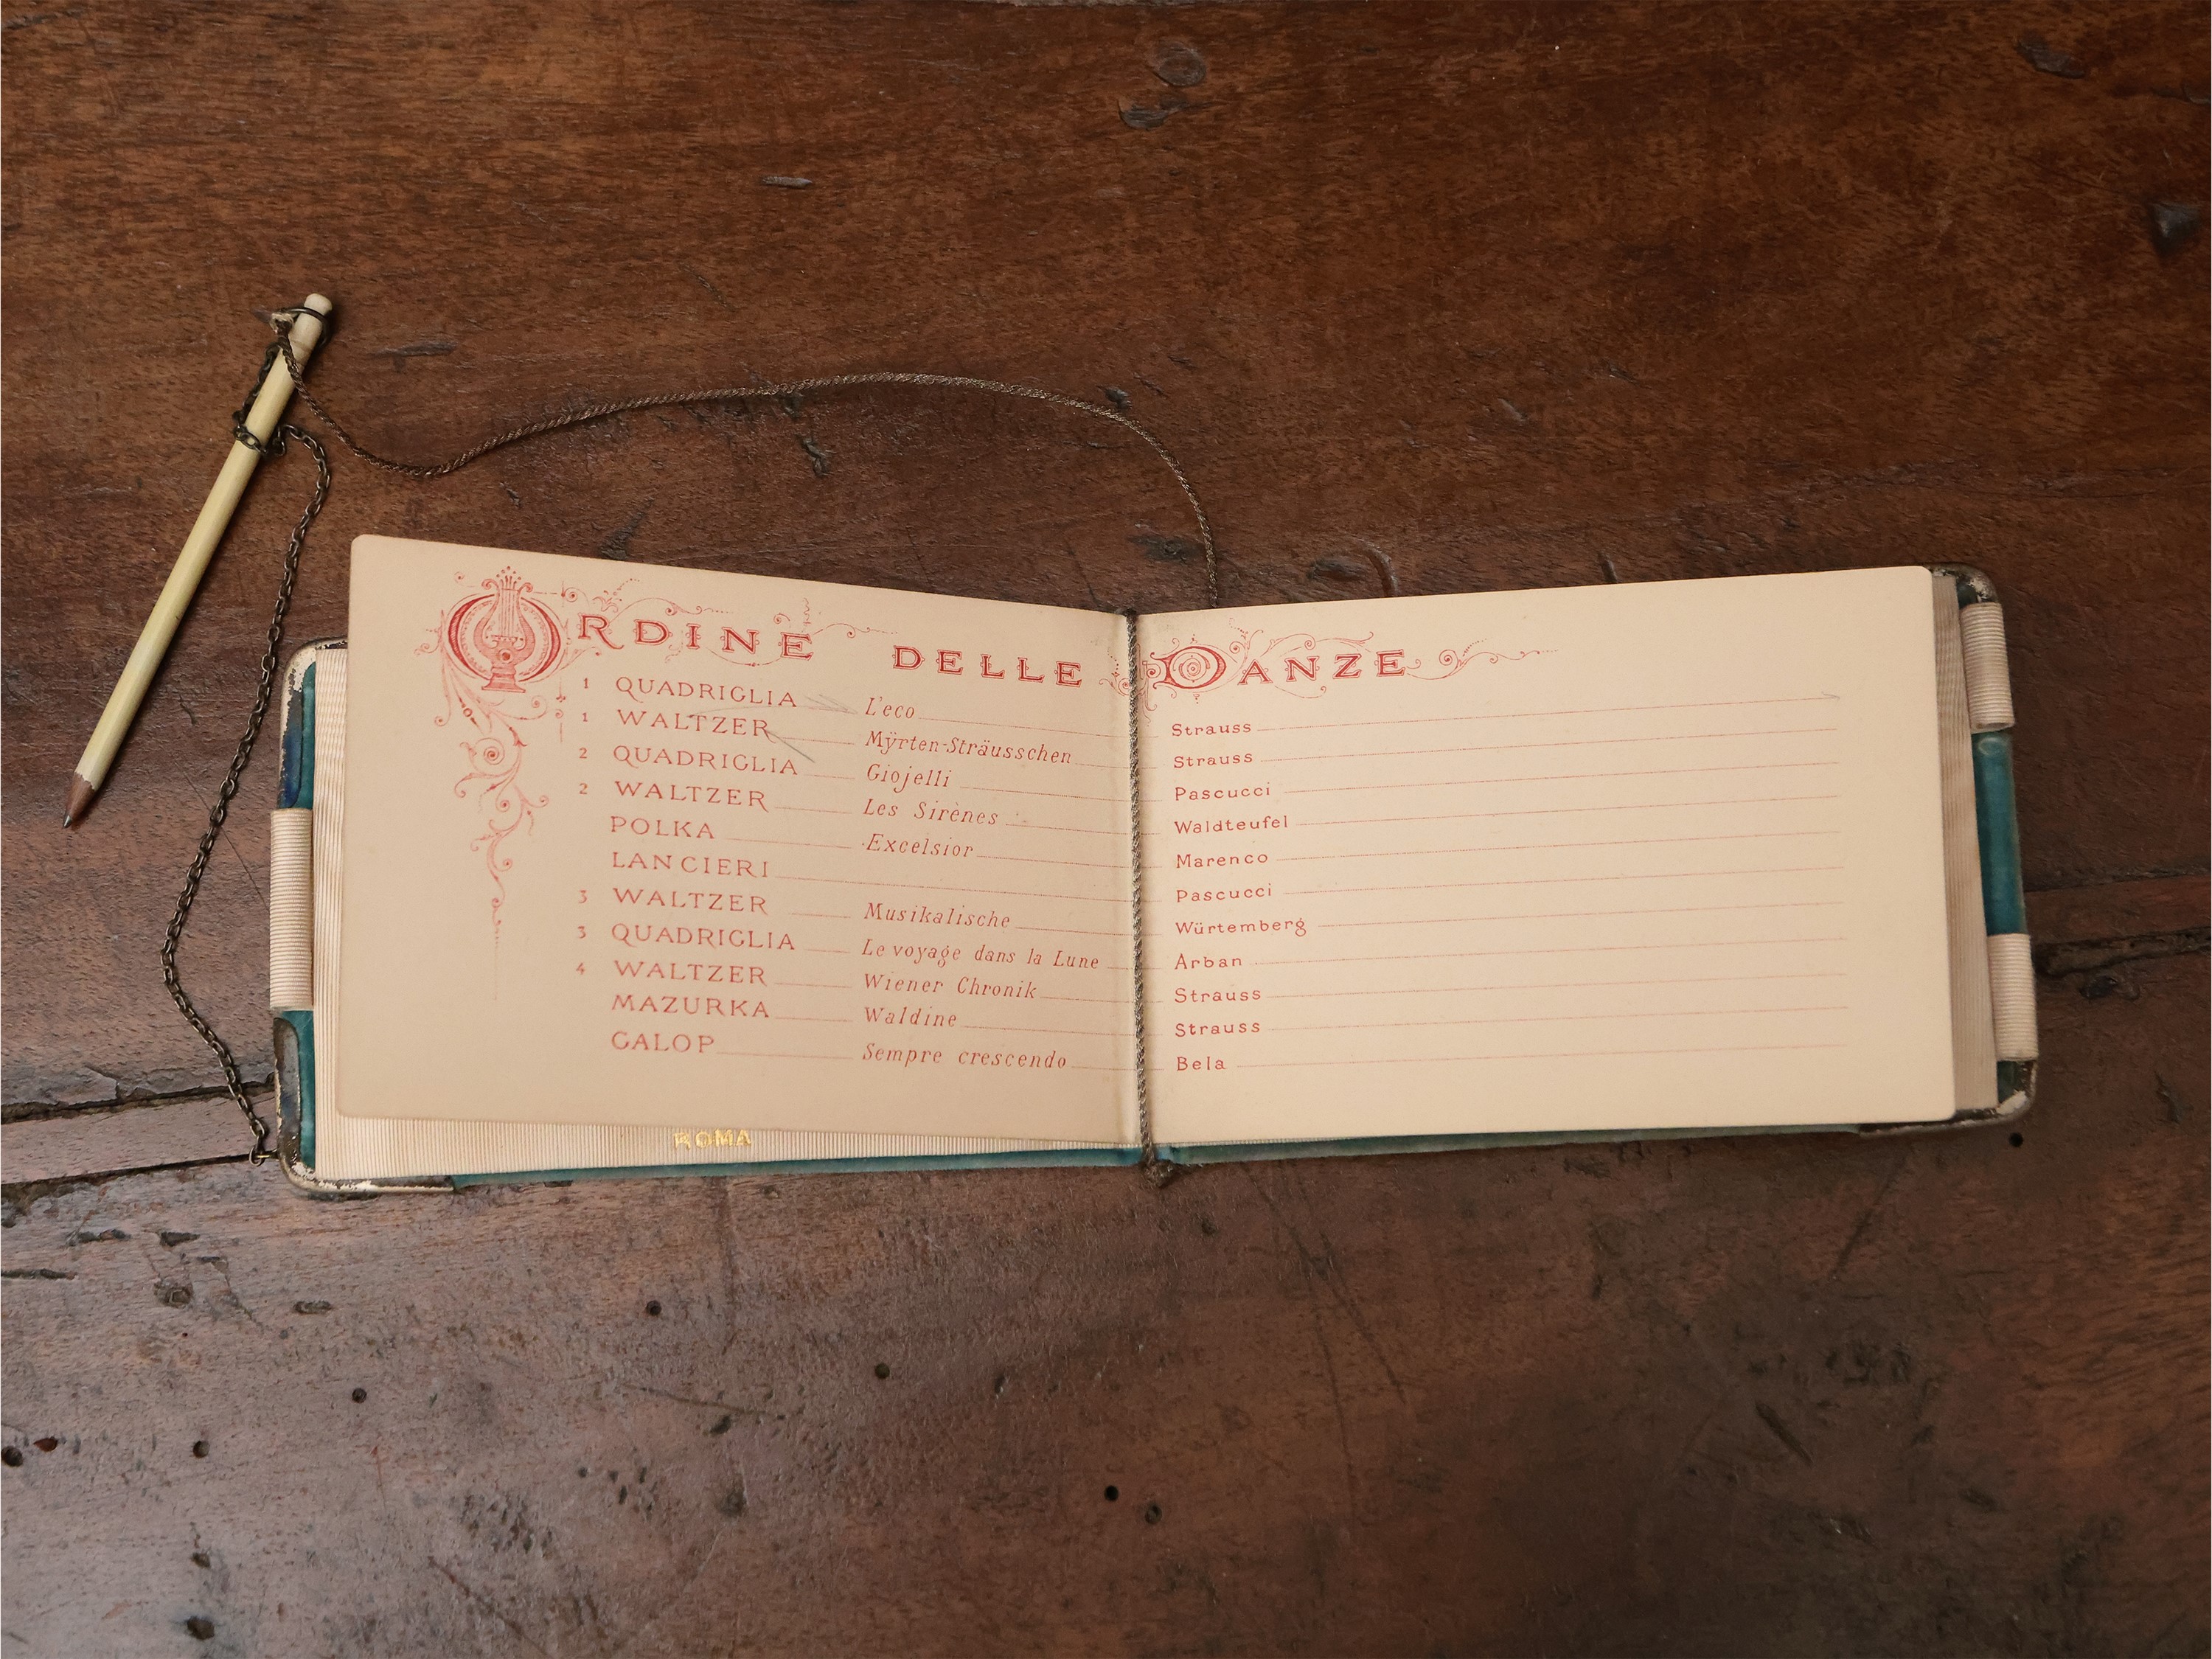 ORDINE DELLE DANZE
1 QUADRIGLIA L'eco Strauss
1 WALTZER Mÿrten-Sträusschen Strauss
2 QUADRIGLIA Giojelli Pascucci
2 WALTZER Les Sirènes Waldteufel
POLKA Excelsior Marenco
LANCIERI Pascucci
3 WALTZER Musikalische Würtemberg
3 QUADRIGLIA Le voyage dans la Lune Arban
4 WALTZER Wiener Chronik Strauss
MAZURKA Waldine Strauss
GALOP Sempre crescendo Bela
ROMA